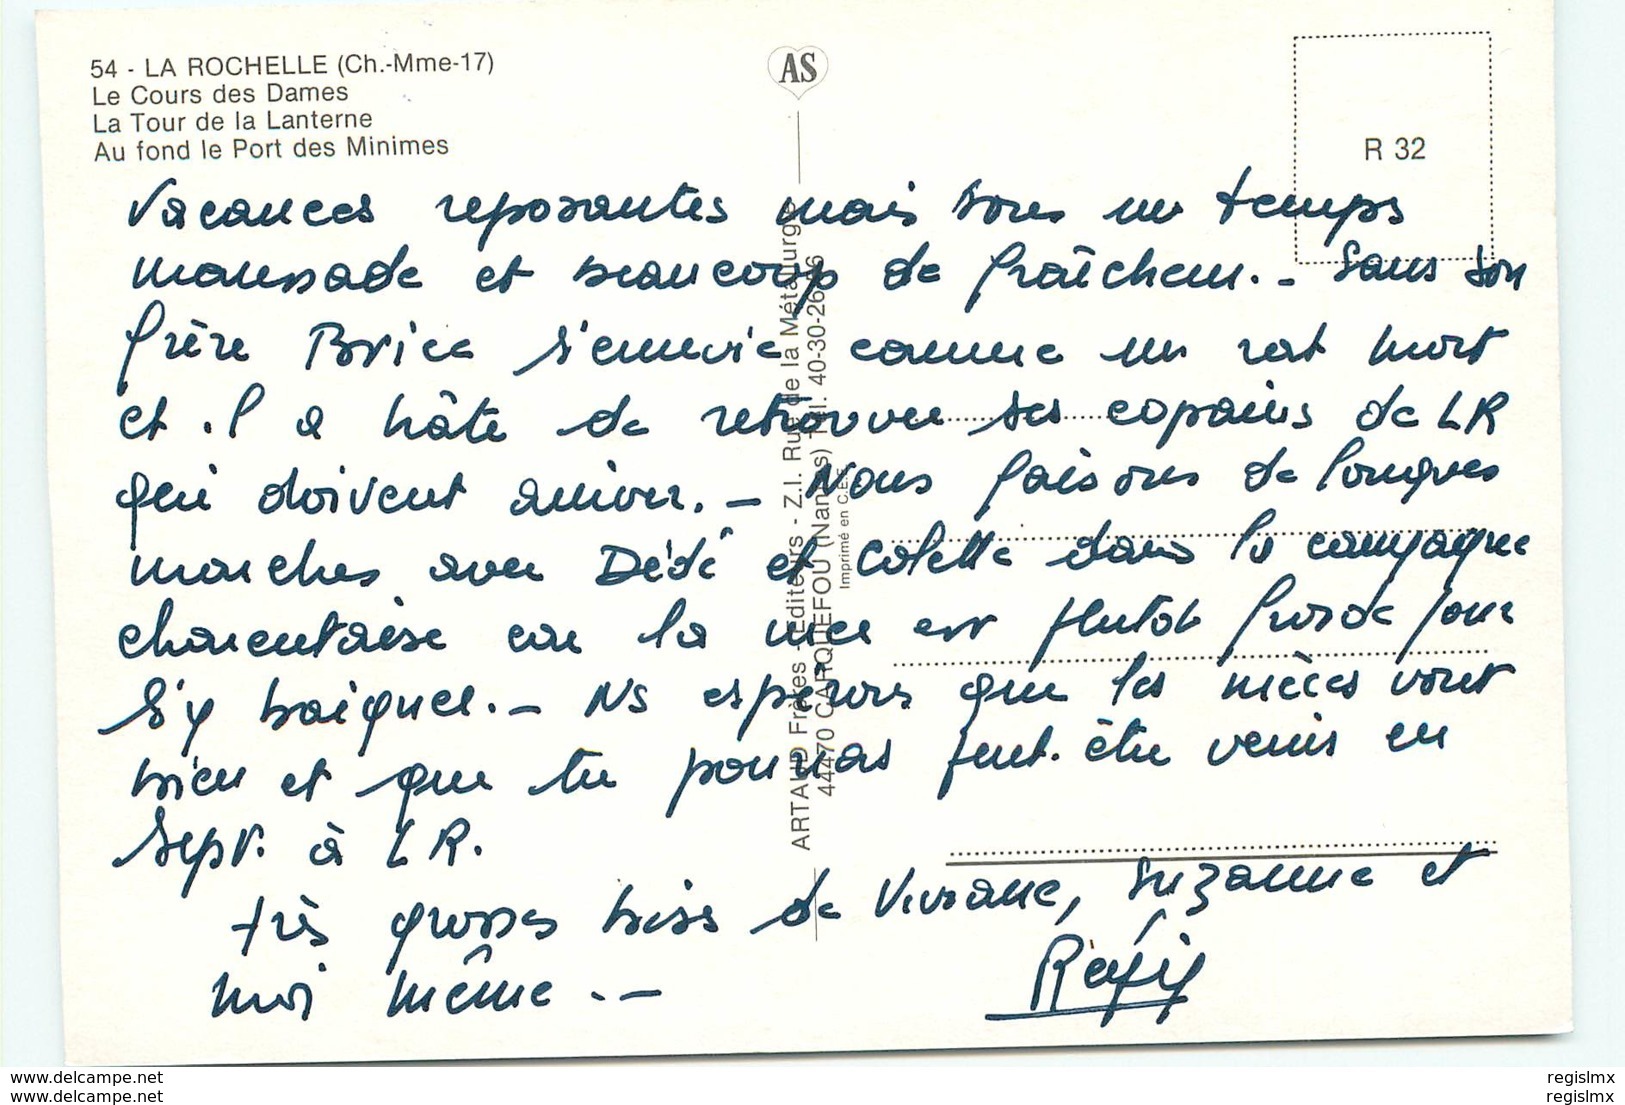 54 - LA ROCHELLE (Ch.-Mme-17)
Le Cours des Dames
La Tour de la Lanterne
Au fond le Port des Minimes
AS
R 32
Vacances reposantes mais sous un temps
maussade et beaucoup de fraîcheur. - Sans son
frère Brice s'ennuie comme un rat mort
et il a hâte de retrouver ses copains de LR
qui doivent arriver. - Nous faisons de longues
marches avec Dédé et Colette dans la campagne
charentaise car la mer est plutôt froide pour
s'y baigner. - Ns espérons que les nièces vont
bien et que tu pourras peut-être venir en
Sept. à LR.
très grosses bises de Viviane, Suzanne et
moi même. -
ARTAUD Frères - Éditeurs - Z.I. Rue de la Métallurgie
44470 CARQUEFOU (Nantes) Tél. 40-30-26-
Imprimé en C.E.E.
www.delcampe.net
www.delcampe.net
regislmx
regislmx